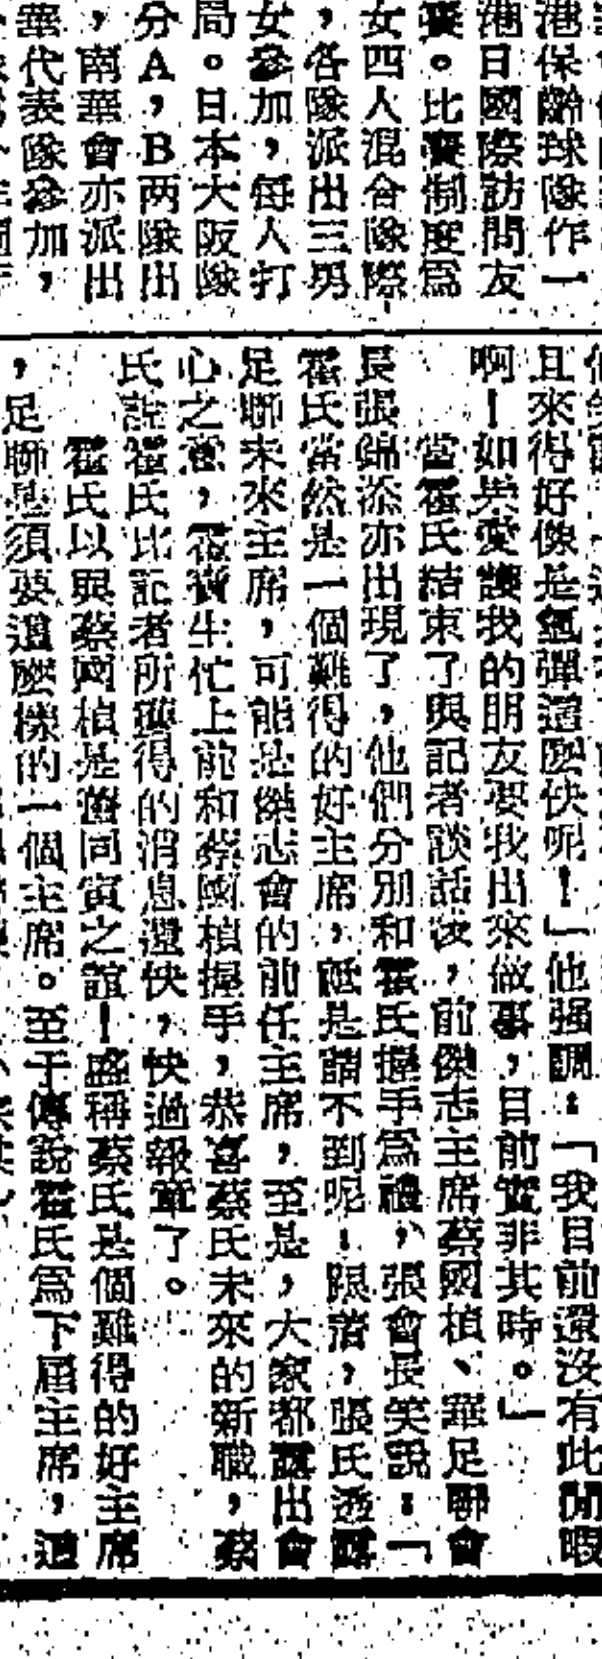 港保齡球隊作一
港日國際訪問友
賽。比賽制度爲
女四人混合隊際
，各隊派出三男
女參加，每人打
局。日本大阪隊
分A，B两隊出
，南華會亦派出
華代表隊參加，
且來得好像是氫彈這麽快呢！」他强調：「我目前還没有此閒暇
啊！如果愛護我的朋友要我出來做事，目前實非其時。」
當霍氏結束了與記者談話後，前傑志主席蔡國楨、華足聯會
長張錦添亦出現了，他們分別和霍氏握手爲禮，張會長笑說：「
霍氏當然是一個難得的好主席，祗是請不到呢！跟着，張氏透露
足聯未來主席，可能是傑志會的前任主席，至是，大家都露出會
心之意，霍寶生忙上前和蔡國楨握手，恭喜蔡氏未來的新職，蔡
氏說霍氏比記者所獲得的消息還快，快過報章了。
霍氏以與蔡國楨是舊同寅之誼！盛稱蔡氏是個難得的好主席
，足聯是須要這麽樣的一個主席。至于傳說霍氏爲下屆主席，這